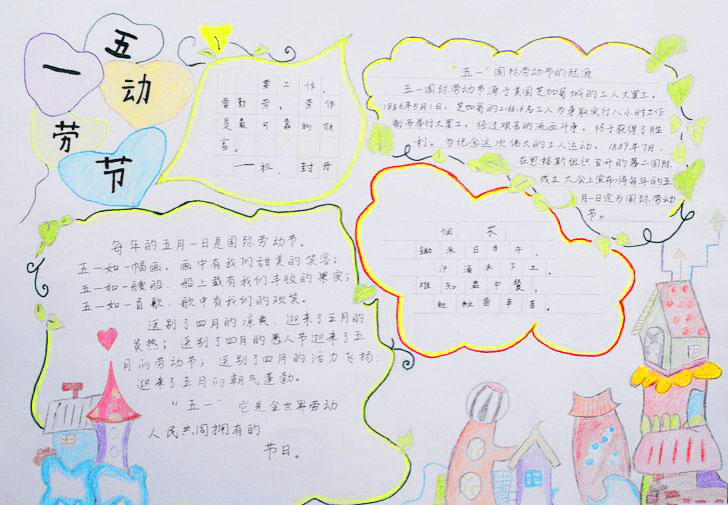 五一
劳动节
要工作,
要勤劳:劳作
是最可靠的财
富。
“五一”国际劳动节的起源
五一国际劳动节源于美国芝加哥城的工人大罢工。
1886年5月1日,芝加哥的21万6千名工人为争取实行八小时工作
制而举行大罢工,经过艰苦的流血斗争,终于获得了胜
利。为纪念这次伟大的工人运动,1889年7月,
在恩格斯组织召开的第二国际
成立大会上宣布将每年的五
月一日定为国际劳动
节。
悯农
锄禾日当午,
汗滴禾下土。
谁知盘中餐,
粒粒皆辛苦。
每年的五月一日是国际劳动节。
五一如一幅画,画中有我们甜美的笑容;
五一如一艘船,船上载有我们丰收的果实;
五一如一首歌,歌中有我们的欢笑。
送别了四月的凉爽,迎来了五月的
炎热;送别了四月的愚人节迎来了五
月的劳动节;送别了四月的活力飞扬,
迎来了五月的朝气蓬勃。
“五一”它是全世界劳动
人民共同拥有的
节日。